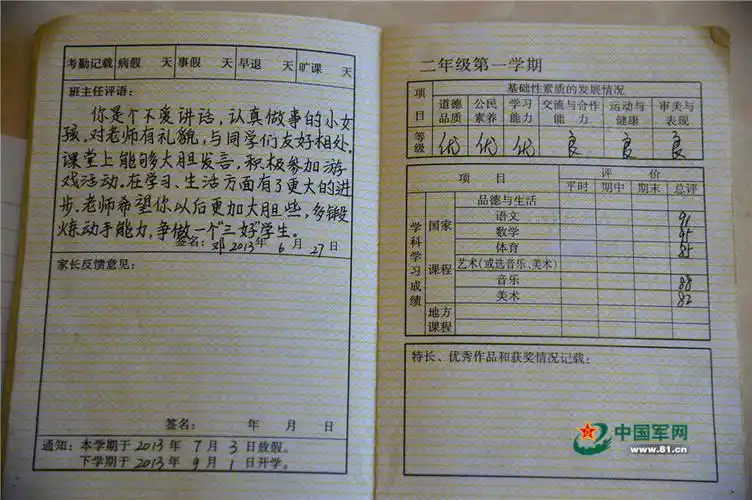 考勤记载 病假 天 事假 天 早退 天 旷课 天
班主任评语：
你是个不爱讲话，认真做事的小女
孩。对老师有礼貌，与同学们友好相处。
课堂上能够大胆发言，积极参加游
戏活动。在学习、生活方面有了更大的进
步。老师希望你以后更加大胆些，多锻
炼动手能力，争做一个“三好”学生。
签名：邓 2013年 6月 27日
家长反馈意见：
签名： 年 月 日
通知：本学期于2013年 7月 3日放假。
下学期于2013年 9月 1日开学。
二年级第一学期
项目 基础性素质的发展情况
道德品质 公民素养 学习能力 交流与合作能力 运动与健康 审美与表现
等级 优 优 优 良 良 良
项目 评价
平时 期中 期末 总评
学科学习成绩
国家课程
品德与生活
语文 91
数学 95
体育 85
艺术(或选音乐、美术)
音乐 88
美术 82
地方课程
特长、优秀作品和获奖情况记载：
中国军网
www.81.cn